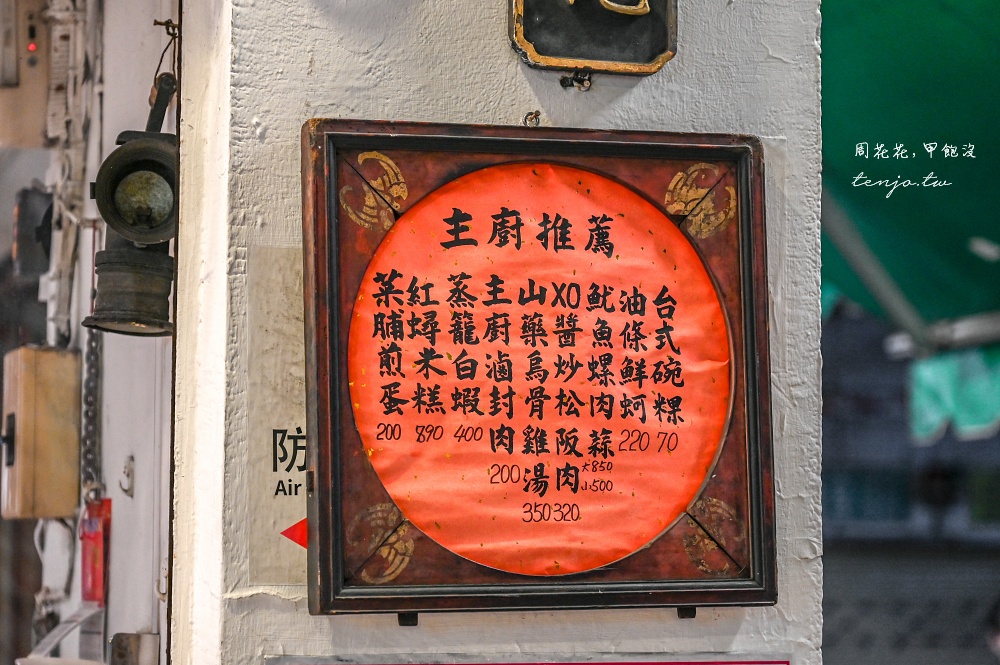 主廚推薦
台式碗粿
70
油條鮮蚵
220
魷魚螺肉蒜
大850
小500
XO醬炒松阪肉
320
山藥烏骨雞湯
350
主廚滷封肉
200
蒸籠白蝦
400
紅蟳米糕
890
菜脯煎蛋
200
防
Air
周花花, 甲飽沒
tenjo.tw